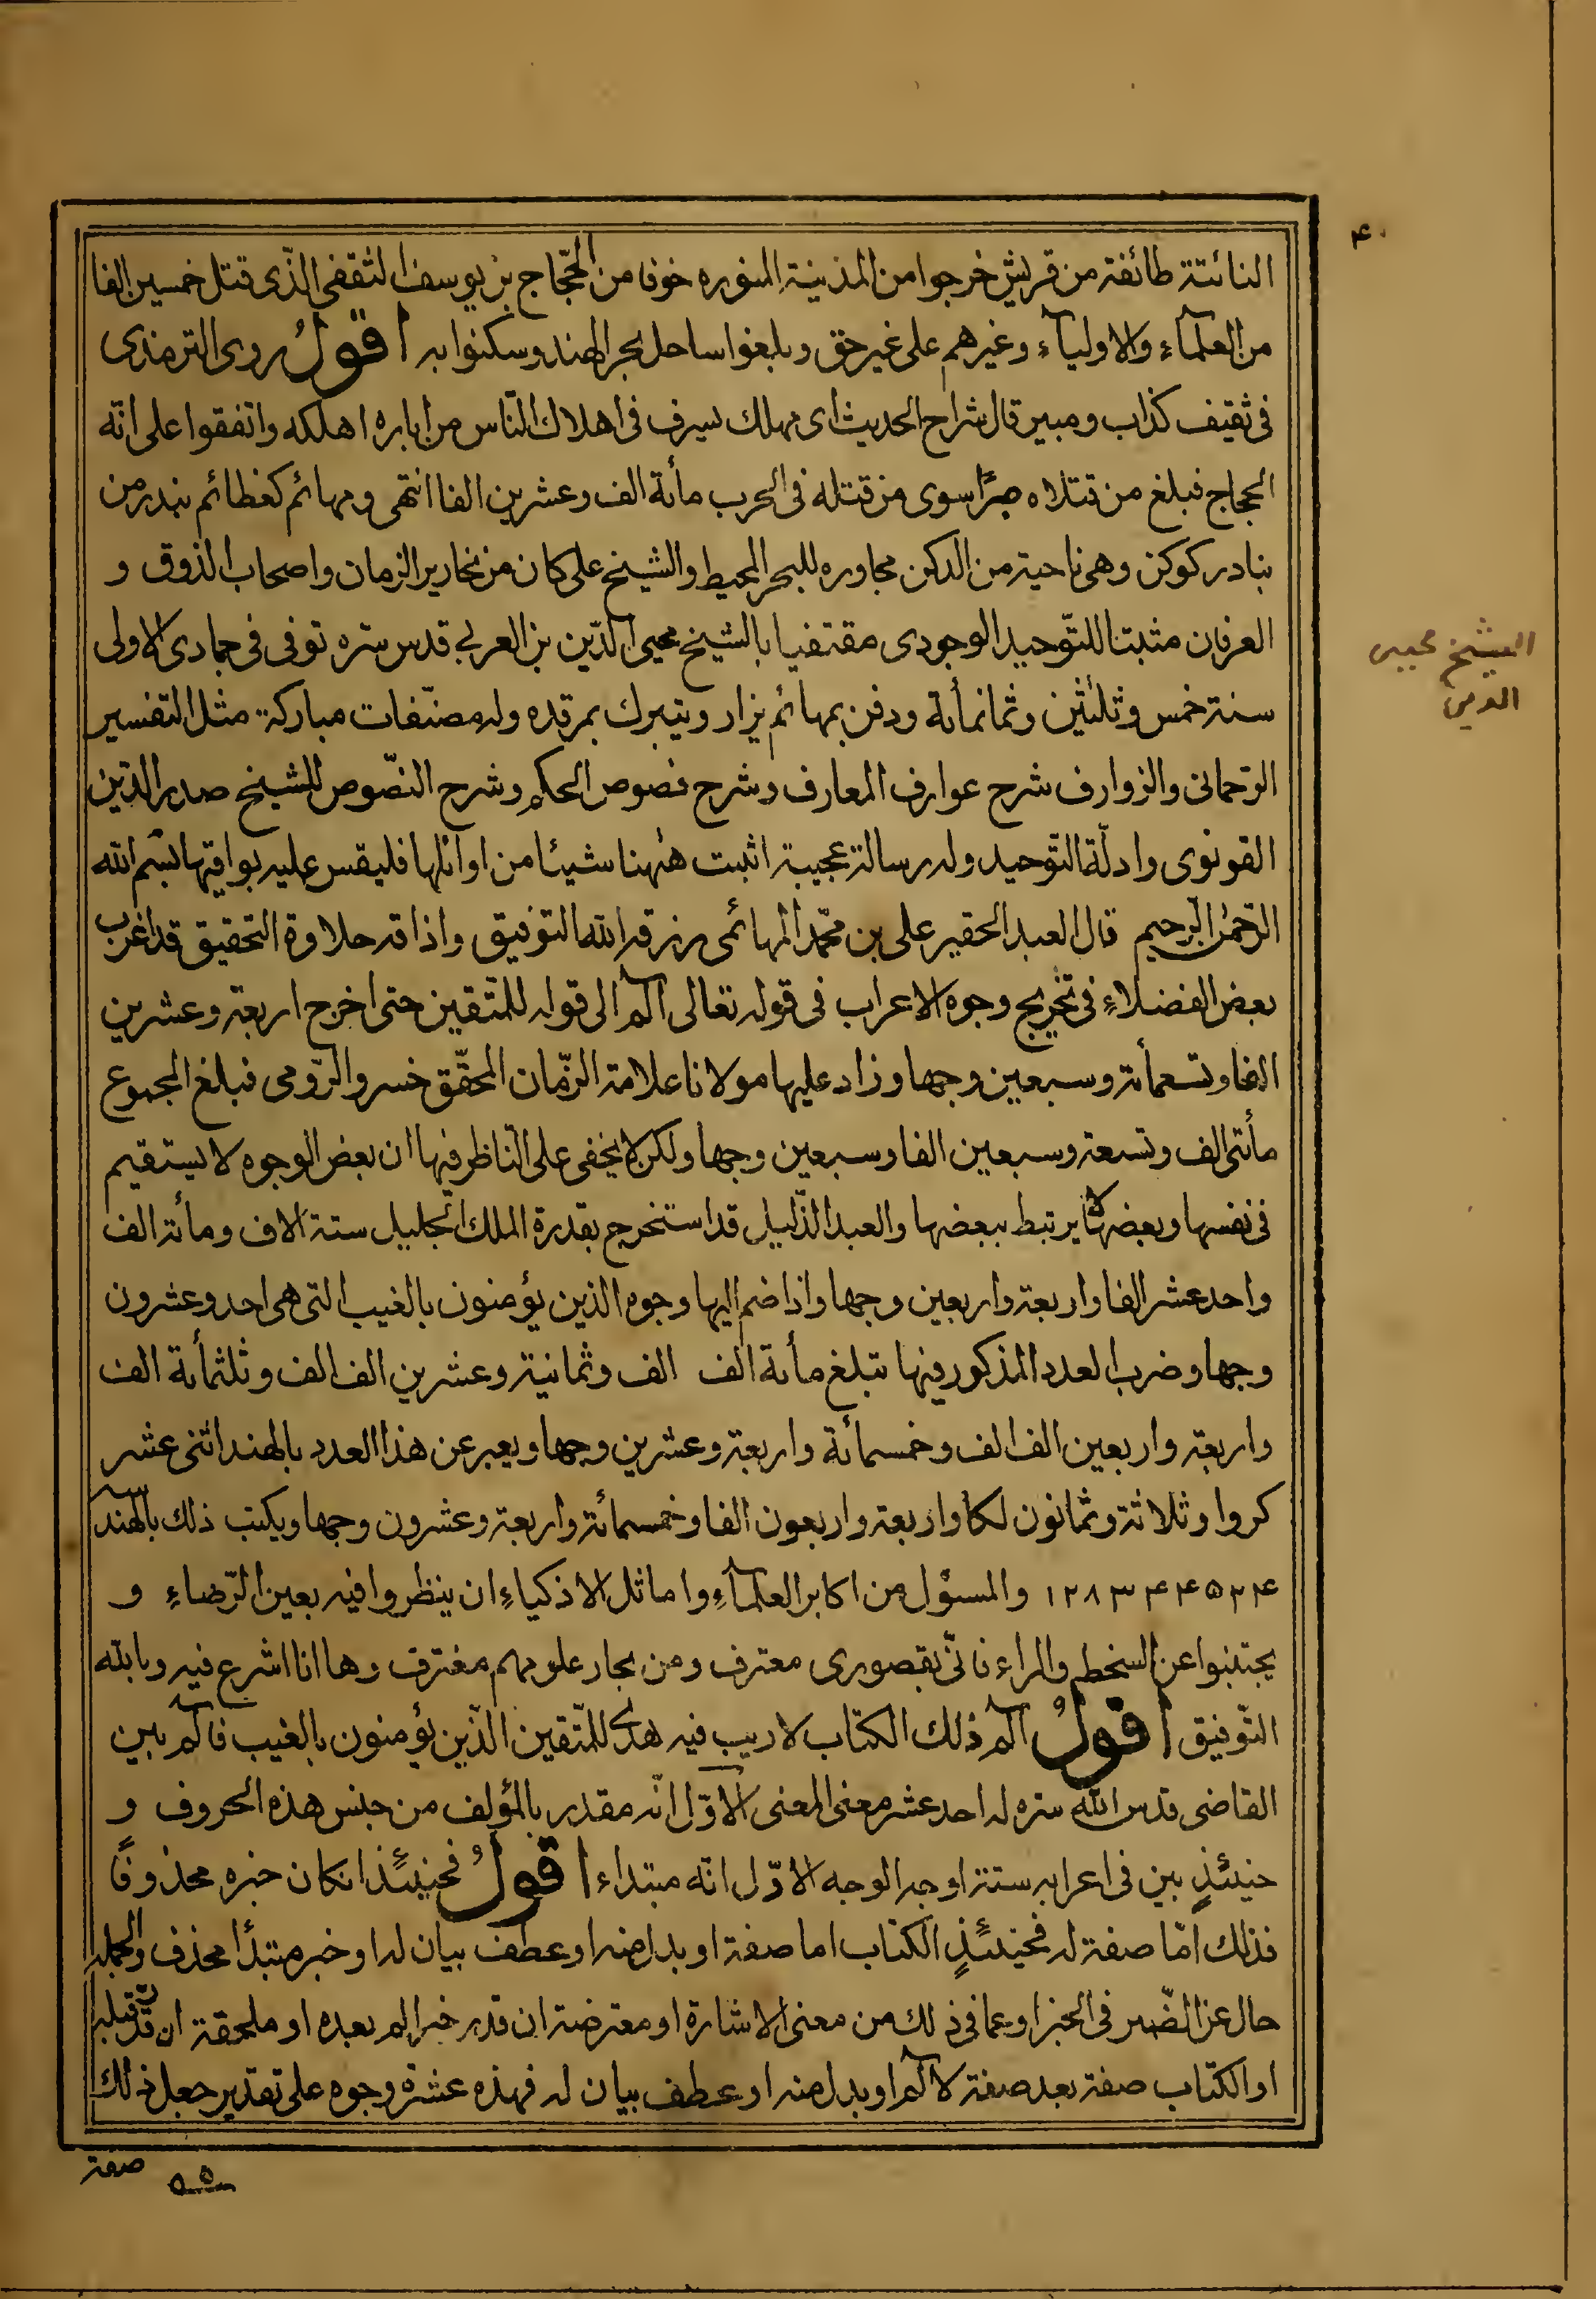 ۴۰
النائتة طائفة من قريش خرجوا من المدينة المنوره خوفا من الحجّاج بن يوسف الثقفى الذّى قتل خمسين الفا
من العلمآء والاوليآء وغيرهم على غير حق وبلغوا ساحل بحر الهند وسكنوا به اقولُ روى الترمذى
فى ثقيف كذاب ومبير قال شراح الحديث اى مهلك يسرف فى اهلاك النّاس من اباره اهلكه واتفقوا على انّه
الحجاج فبلغ من قتلاه صبرًا سوى من قتله فى الحرب مأئة الف وعشرين الفا انتهى ومهائم كغطائم بندر من
بنادر كوكن وهى ناحية من الدكن مجاوره للبحر المحيط والشيخ على كان من نحارير الزمان واصحاب الذوق و
العرفان مثبتا للتّوحيد الوجودى مقتفيا بالشيخ محيى الدّين بن العربى قدس سرّه توفى فى جمادى الاولى
سنة خمس وثلثين وثمانمأئة ودفن بمهائم يزار ويتبرك بمرقده وله مصنّفات مباركة مثل التفسير
الرّحمانى والزوارف شرح عوارف المعارف وشرح فصوص الحكم وشرح النصّوص للشيخ صدر الدّين
القونوى وادلّة التّوحيد وله رسالة عجيبة اثبت هٰهنا شيئا من اوائلها فليقس عليه بواقيها بسم الله
الرّحمٰن الرّحيم قال العبد الحقير على بن محمّد المهائمى رزقه الله التوفيق واذاقه حلاوة التحقيق قد اغرب
بعض الفضلاء فى تخريج وجوه الاعراب فى قوله تعالى الٓم الى قوله للمتّقين حتى اخرج اربعة وعشرين
الفا وتسعمأئة وسبعين وجها وزاد عليها مولانا علامة الزّمان المحقّق خسرو الرّومى فبلغ المجموع
مأئتى الف وتسعة وسبعين الفا وسبعين وجها ولكن لا يخفى على النّاظر فيها ان بعض الوجوه لا يستقيم
فى نفسها وبعضها لا يرتبط ببعضها والعبد الذّليل قد استخرج بقدرة الملك الجليل ستة الاف ومأئة الف
واحد عشر الفا واربعة واربعين وجها واذا ضم اليها وجوه الذين يؤمنون بالغيب التى هى احد وعشرون
وجها وضرب العدد المذكور فيها تبلغ مأئة الف الف وثمانية وعشرين الف الف وثلثمأئة الف
واربعة واربعين الف الف وخمسمائة واربعة وعشرين وجها ويعبر عن هذا العدد بالهند اثنى عشر
كروا وثلاثة وثمانون لكا واربعة واربعون الفا وخمسمائة واربعة وعشرون وجها ويكتب ذلك بالهند
۱۲۸۳۴۴۵۲۴ والمسؤل من اكابر العلمآء واماثل الاذكياء ان ينظروا فيه بعين الرّضاء و
يجتنبوا عن السخط والمراء فانّى بقصورى معترف ومن بحار علومهم مغترف وها انا اشرع فيه وبالله
التّوفيق اقولُ الٓم ذلك الكتاب لا ريب فيه هدًى للمتّقين الّذين يؤمنون بالغيب فالٓم بين
القاضى قدس الله سره له احد عشر معنى المعنى الاوّل انّه مقدر بالمؤلف من جنس هذه الحروف و
حينئذٍ بين فى اعرابه ستة اوجه الوجه الاوّل انّه مبتداء اقولُ فحينئذ ان كان خبره محذوفًا
فذلك امّا صفة له فحينئذٍ الكتاب اما صفة او بدل منه او عطف بيان له او خبر مبتدأ محذف والجملة
حال عن الضّمير فى الخبر او عما فى ذلك من معنى الاشارة او معترضة ان قدر خبر الم بعده او ملحقة ان قدّر قبله
او الكتاب صفة بعد صفة لالٓم او بدل منه او عطف بيان له فهذه عشرة وجوه على تقدير جعل ذلك
صفة
الشيخ محيى
الدين